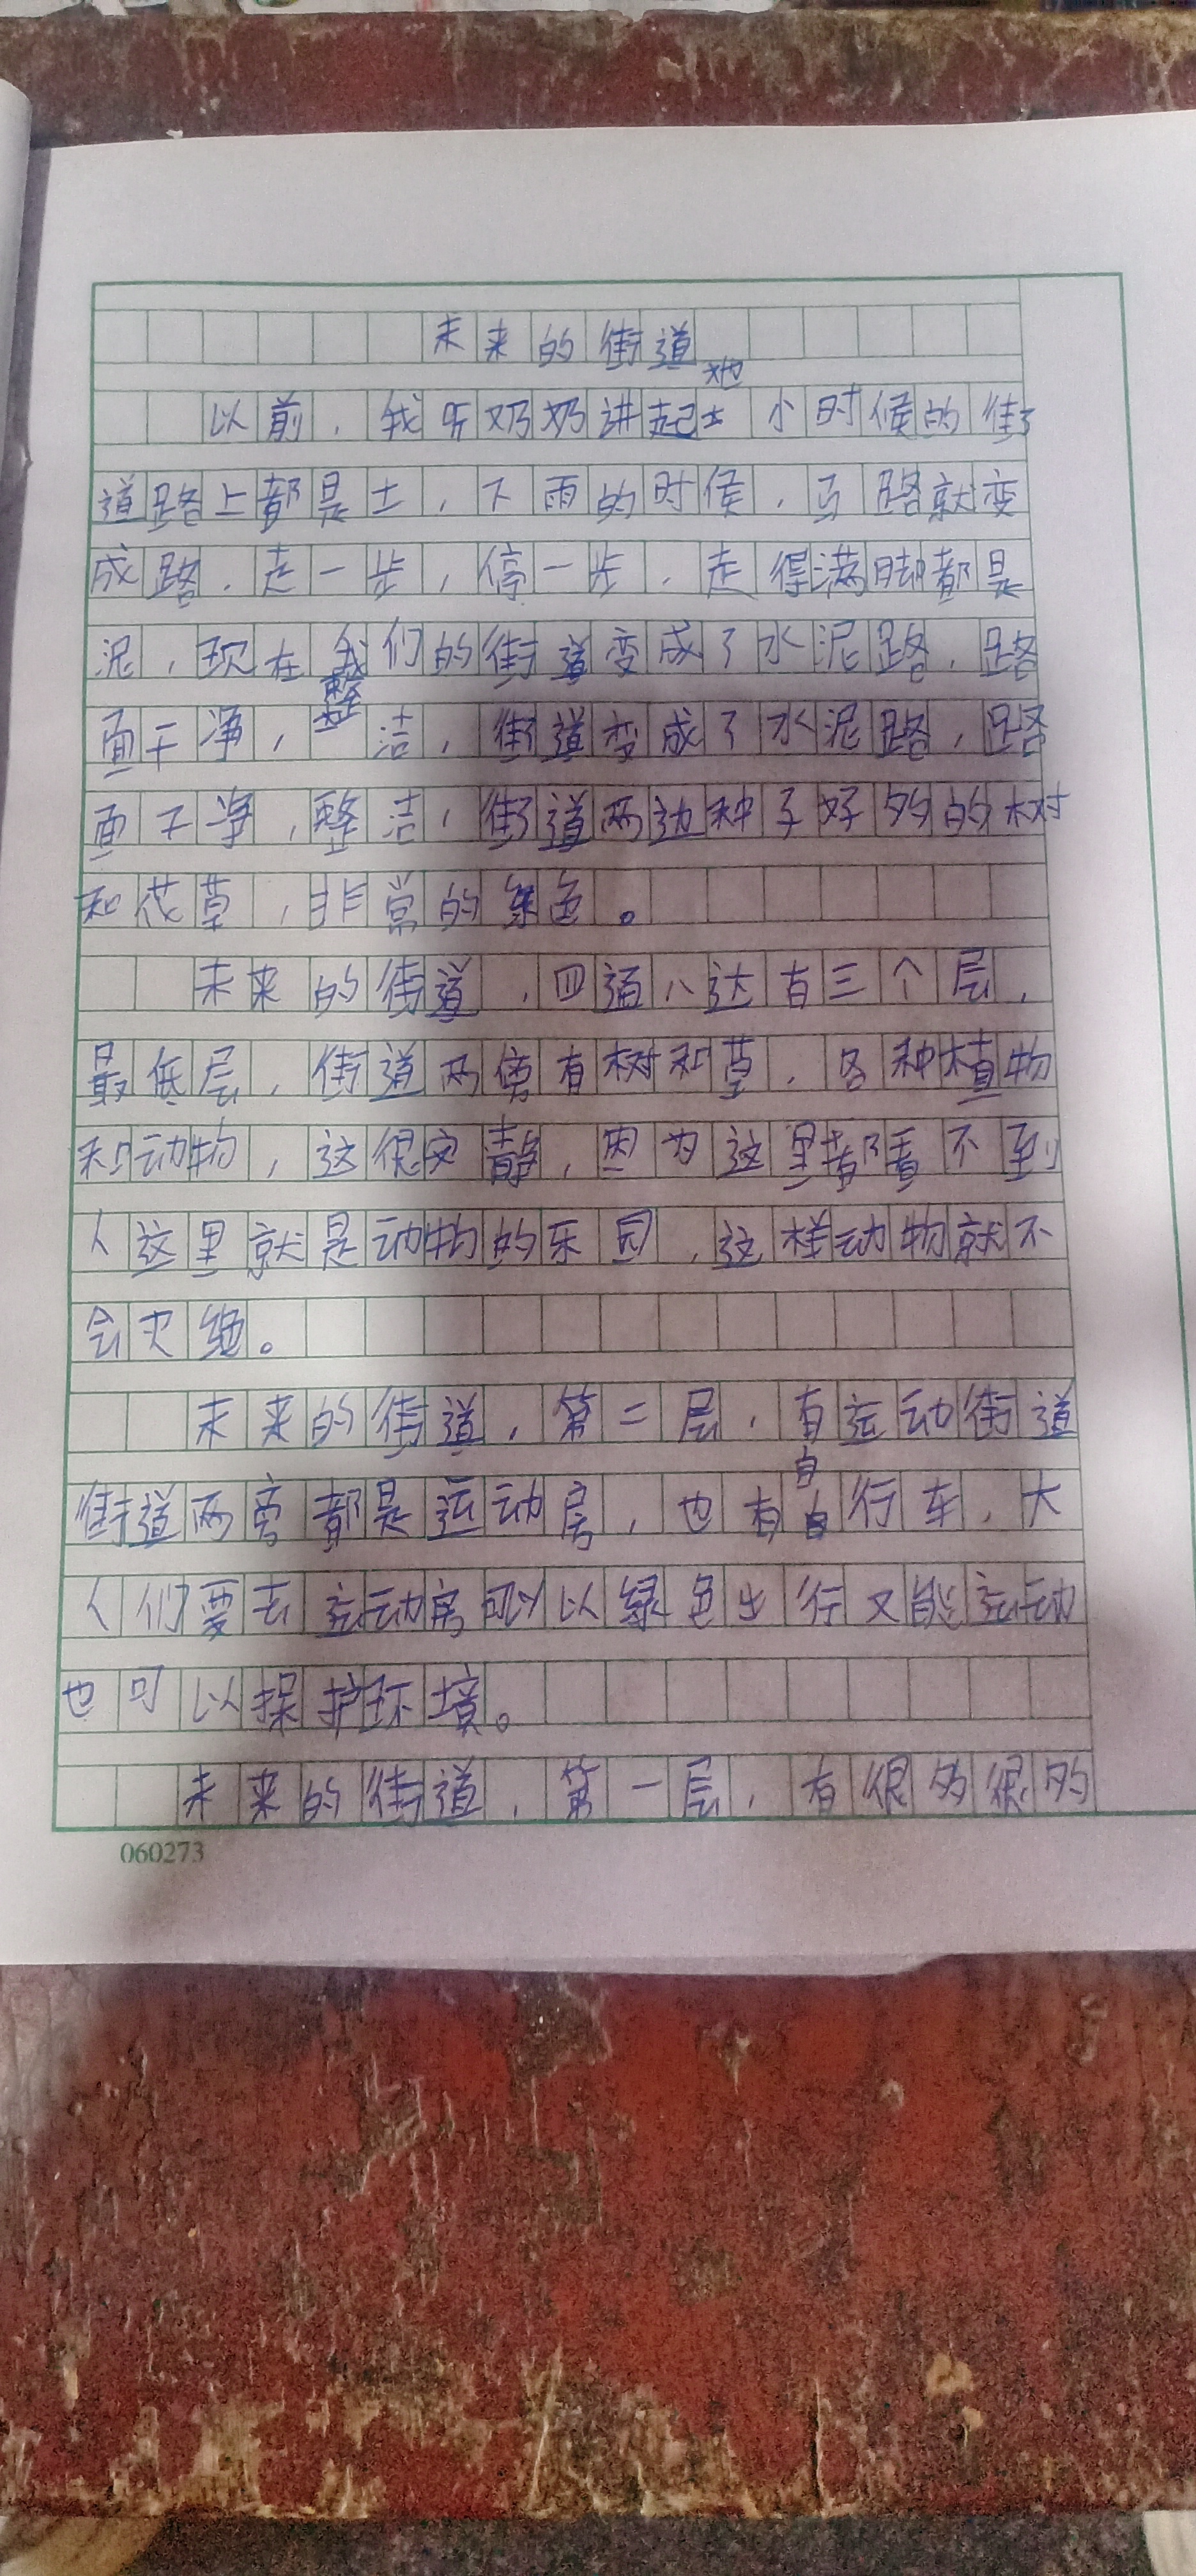 未来的街道
以前，我听奶奶讲起她小时候的街
道路上都是土，下雨的时候，马路就变
成路，走一步，停一步，走得满脚都是
泥，现在我们的街道变成了水泥路，路
面干净，整洁，街道变成了水泥路，路
面干净，整洁，街道两边种了好多的树
和花草，非常的绿色。
未来的街道，四通八达有三个层，
最低层，街道两旁有树和草，各种植物
和动物，这很安静，因为这里都看不到
人这里就是动物的乐园，这样动物就不
会灭绝。
未来的街道，第二层，有运动街道
街道两旁都是运动房，也有自行车，大
人们要去运动房可以以绿色出行又能运动
也可以保护环境。
未来的街道，第一层，有很多很多
060273